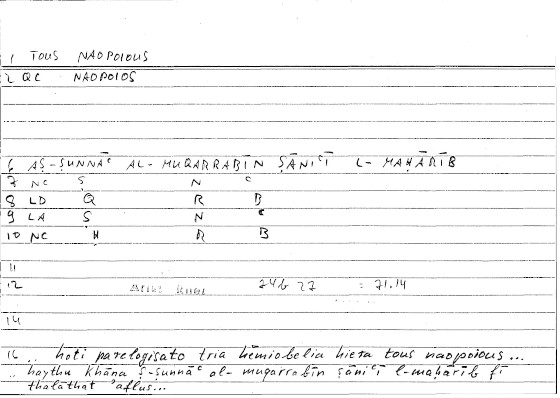 1 TOUS NAOPOIOUS
2 QC NAOPOIOS
6 AṢ-ṢUNNĀᶜ AL-MUQARRABĪN ṢĀNIᶜĪ L-MAḤĀRĪB
7 NC Ṣ N ᶜ
8 LD Q R B
9 LA Ṣ N ᶜ
10 NC Ḥ R B
11
12 24b 27 = 71.14
14
16 .. hoti parelogisato tria hēmiobelia hiera tous naopoious...
.. haythu khāna ṣ-ṣunnāᶜ al-muqarrabīn ṣāniᶜī l-maḥārīb fī
thalāthat 'aflus...